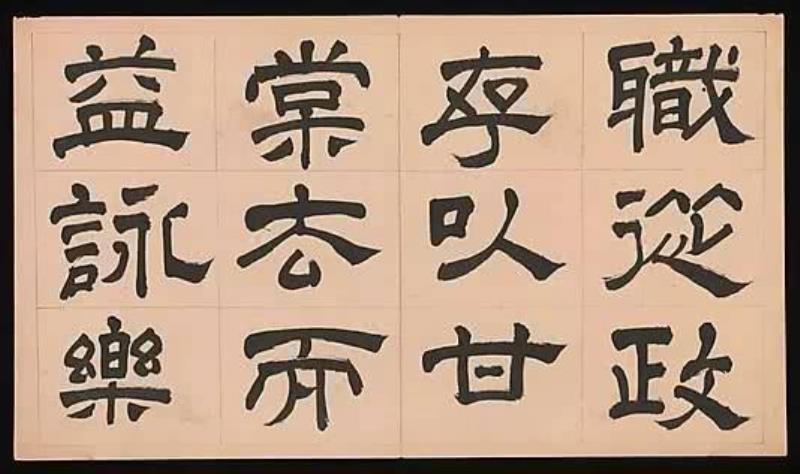 職從政
存以甘
棠去而
益詠樂